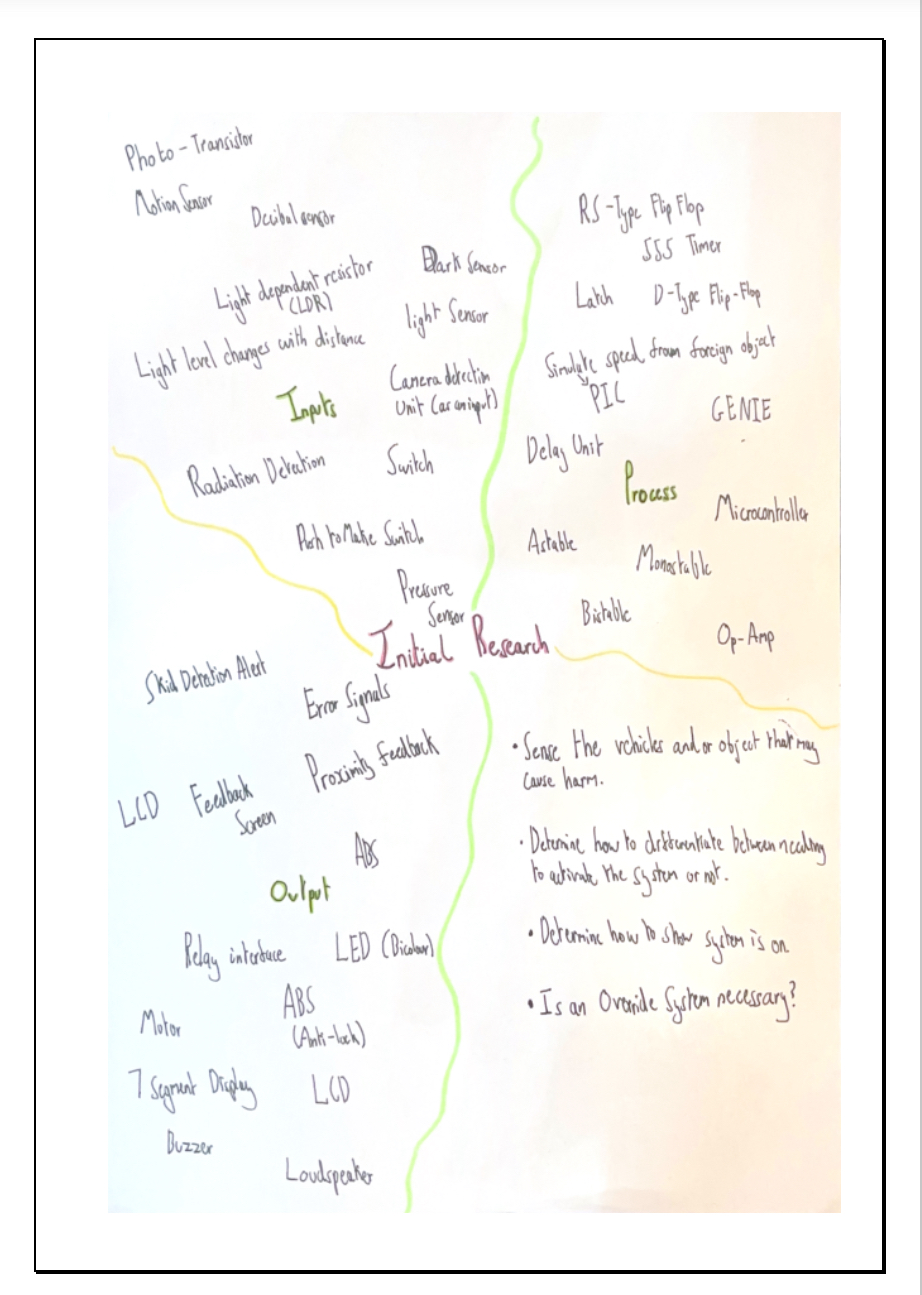 Photo-Transistor
Motion Sensor
Decibal sensor
Light dependent resistor
(LDR)
Dark Sensor
light Sensor
Light level changes with distance
Camera detection
Unit (as an input)
Inputs
Radiation Detection
Switch
Push to Make Switch
Pressure
Sensor
RS-Type Flip Flop
555 Timer
Latch
D-Type Flip-Flop
Simulate speed from foreign object
PIC
GENIE
Delay Unit
Process
Microcontroller
Astable
Monostable
Bistable
Op-Amp
Initial Research
Skid Detection Alert
Error Signals
Proximity Feedback
LCD
Feedback
Screen
ABS
Output
Relay interface
LED (Bicolour)
ABS
(Anti-lock)
Motor
7 Segment Display
LCD
Buzzer
Loudspeaker
• Sense the vehicles and/or object that may
cause harm.
• Determine how to differentiate between needing
to activate the system or not.
• Determine how to show system is on
• Is an Override System necessary?